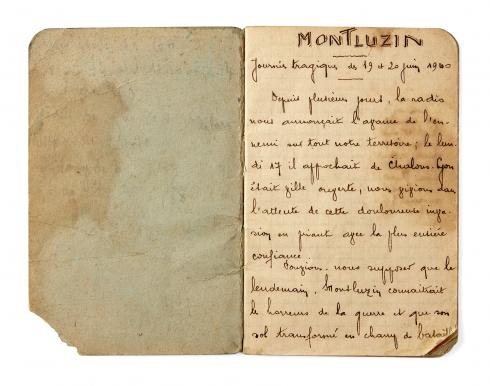 MONTLUZIN
Journées tragiques des 19 et 20 juin 1940
Depuis plusieurs jours, la radio
nous annonçait l'avance de l'en-
nemi sur tout notre territoire ; le lun-
di 17 il approchait de Chalons. Lyon
était ville ouverte, nous vivions dans
l'attente de cette douloureuse inva-
sion en priant avec la plus entière
confiance.
Pouvions-nous supposer que le
lendemain, Montluzin connaitrait
le horreurs de la guerre et que son
sol transformé en champ de bataill